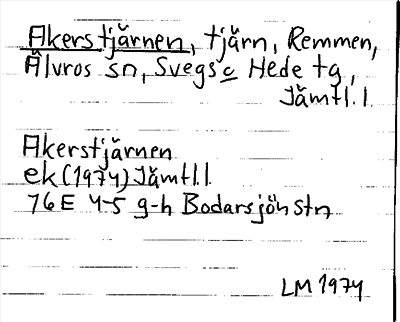 Åkerstjärnen, tjärn, Remmen,
Älvros sn, Svegs o Hede tg,
Jämtl.l.
Åkerstjärnen
ek (1974) Jämtl.l
16E 4-5 g-h Bodarsjön Stn
LM 1974